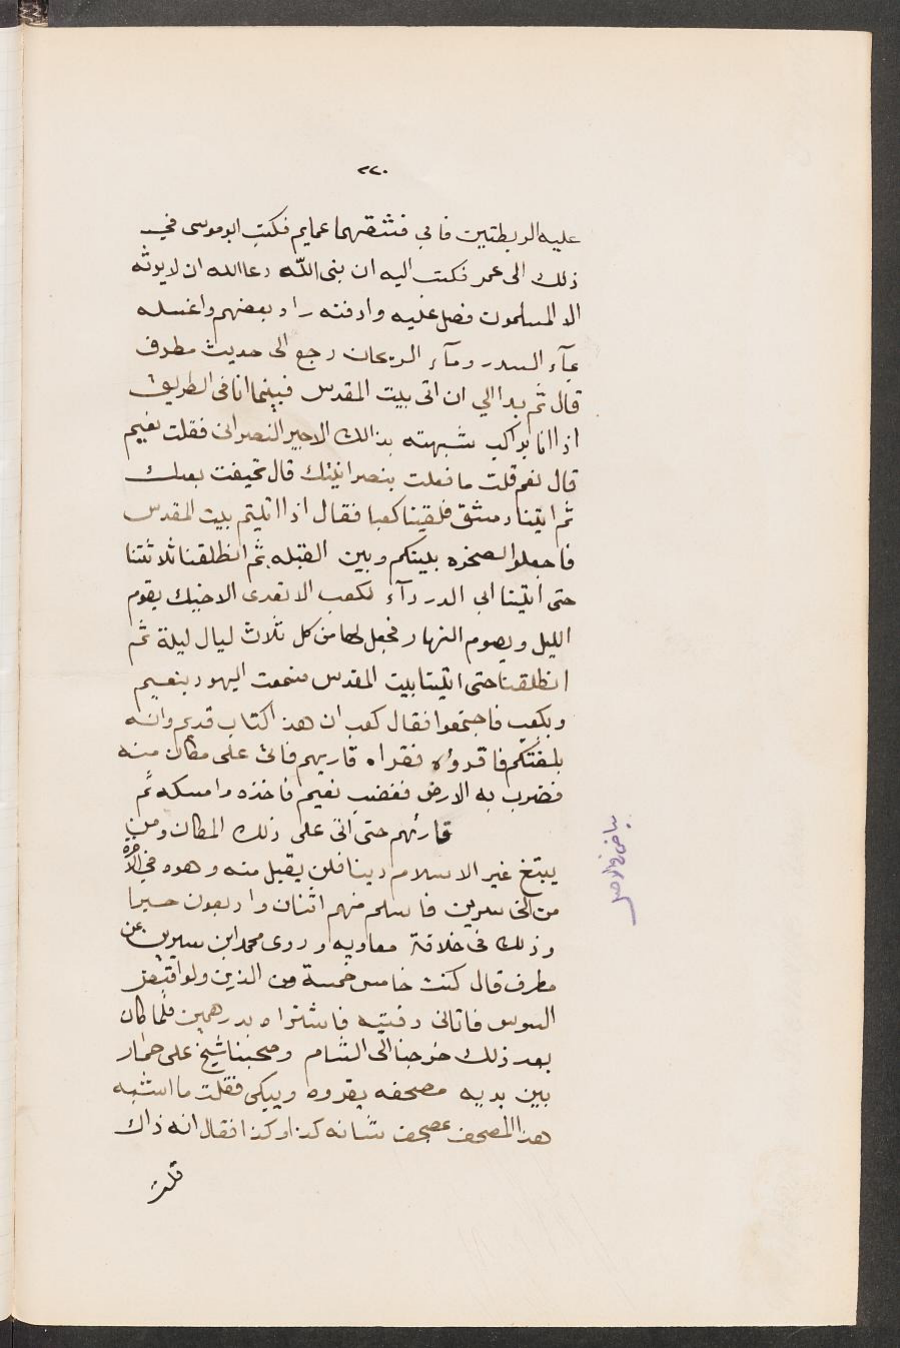 ٢٢٠
عليه الريطتين فاني فشققهما عمايم فكتب ابو موسى في
ذلك الى عمر فكتب اليه ان بنى الله دعا الله ان لا يوثه
الا المسلمون فصل عليه وادفنه راد بعضهم واغسله
بمآء السدر ومآء الريحان رجع الى حديث مطرف
قال ثم بدا الي ان اتى بيت المقدس فبينما انا فى الطريق
اذا انا براكب شبهته بذالك الاجير النصرانى فقلت نعيم
قال نعم قلت ما فعلت بنصرانيتك قال تحيفت بعدك
ثم اتينا دمشق فلقينا كعبا فقال اذا اتيتم بيت المقدس
فاجعلوا الصخره بينكم وبين القبله ثم انطلقنا ثلاثتنا
حتى اتينا ابى الدردآء لكعب الا تعدى الاخيك يقوم
الليل ويصوم النهار فجعل لها من كل ثلاث ليال ليلة ثم
انطلقنا حتى اتينا بيت المقدس فسمعت اليهود بنعيم
وبكعب فاجتمعوا فقال كعب ان هذا كتاب قديم وانه
بلغتكم فاقروه فقراه قاريهم فاتى على مكان منه
فضرب به الارض فغضب نعيم فاخذه وامسكه ثم
قارئهم حتى اتى على ذلك المكان ومن
يبتغ غير الاسلام دينا فلن يقبل منه وهوه في الآخرة
من الخسرين فاسلم منهم اثنان واربعون حبرا
وذلك فى خلافة معاويه وروى محمد ابن سيرين عن
مطرف قال كنت خامس خمسة من الذين ولوا قبض
السوس فاتانى دفتيه فاشتراه بدرهمين فلما كان
بعد ذلك خرجنا الى الشام وصحبنا شيخ على حمار
بين يديه مصحفه يقروه ويبكى فقلت ما اشبه
هذا المصحف بمصحف شانه كذا وكذا فقال انه ذاك
قلت
بياض فى الاصل